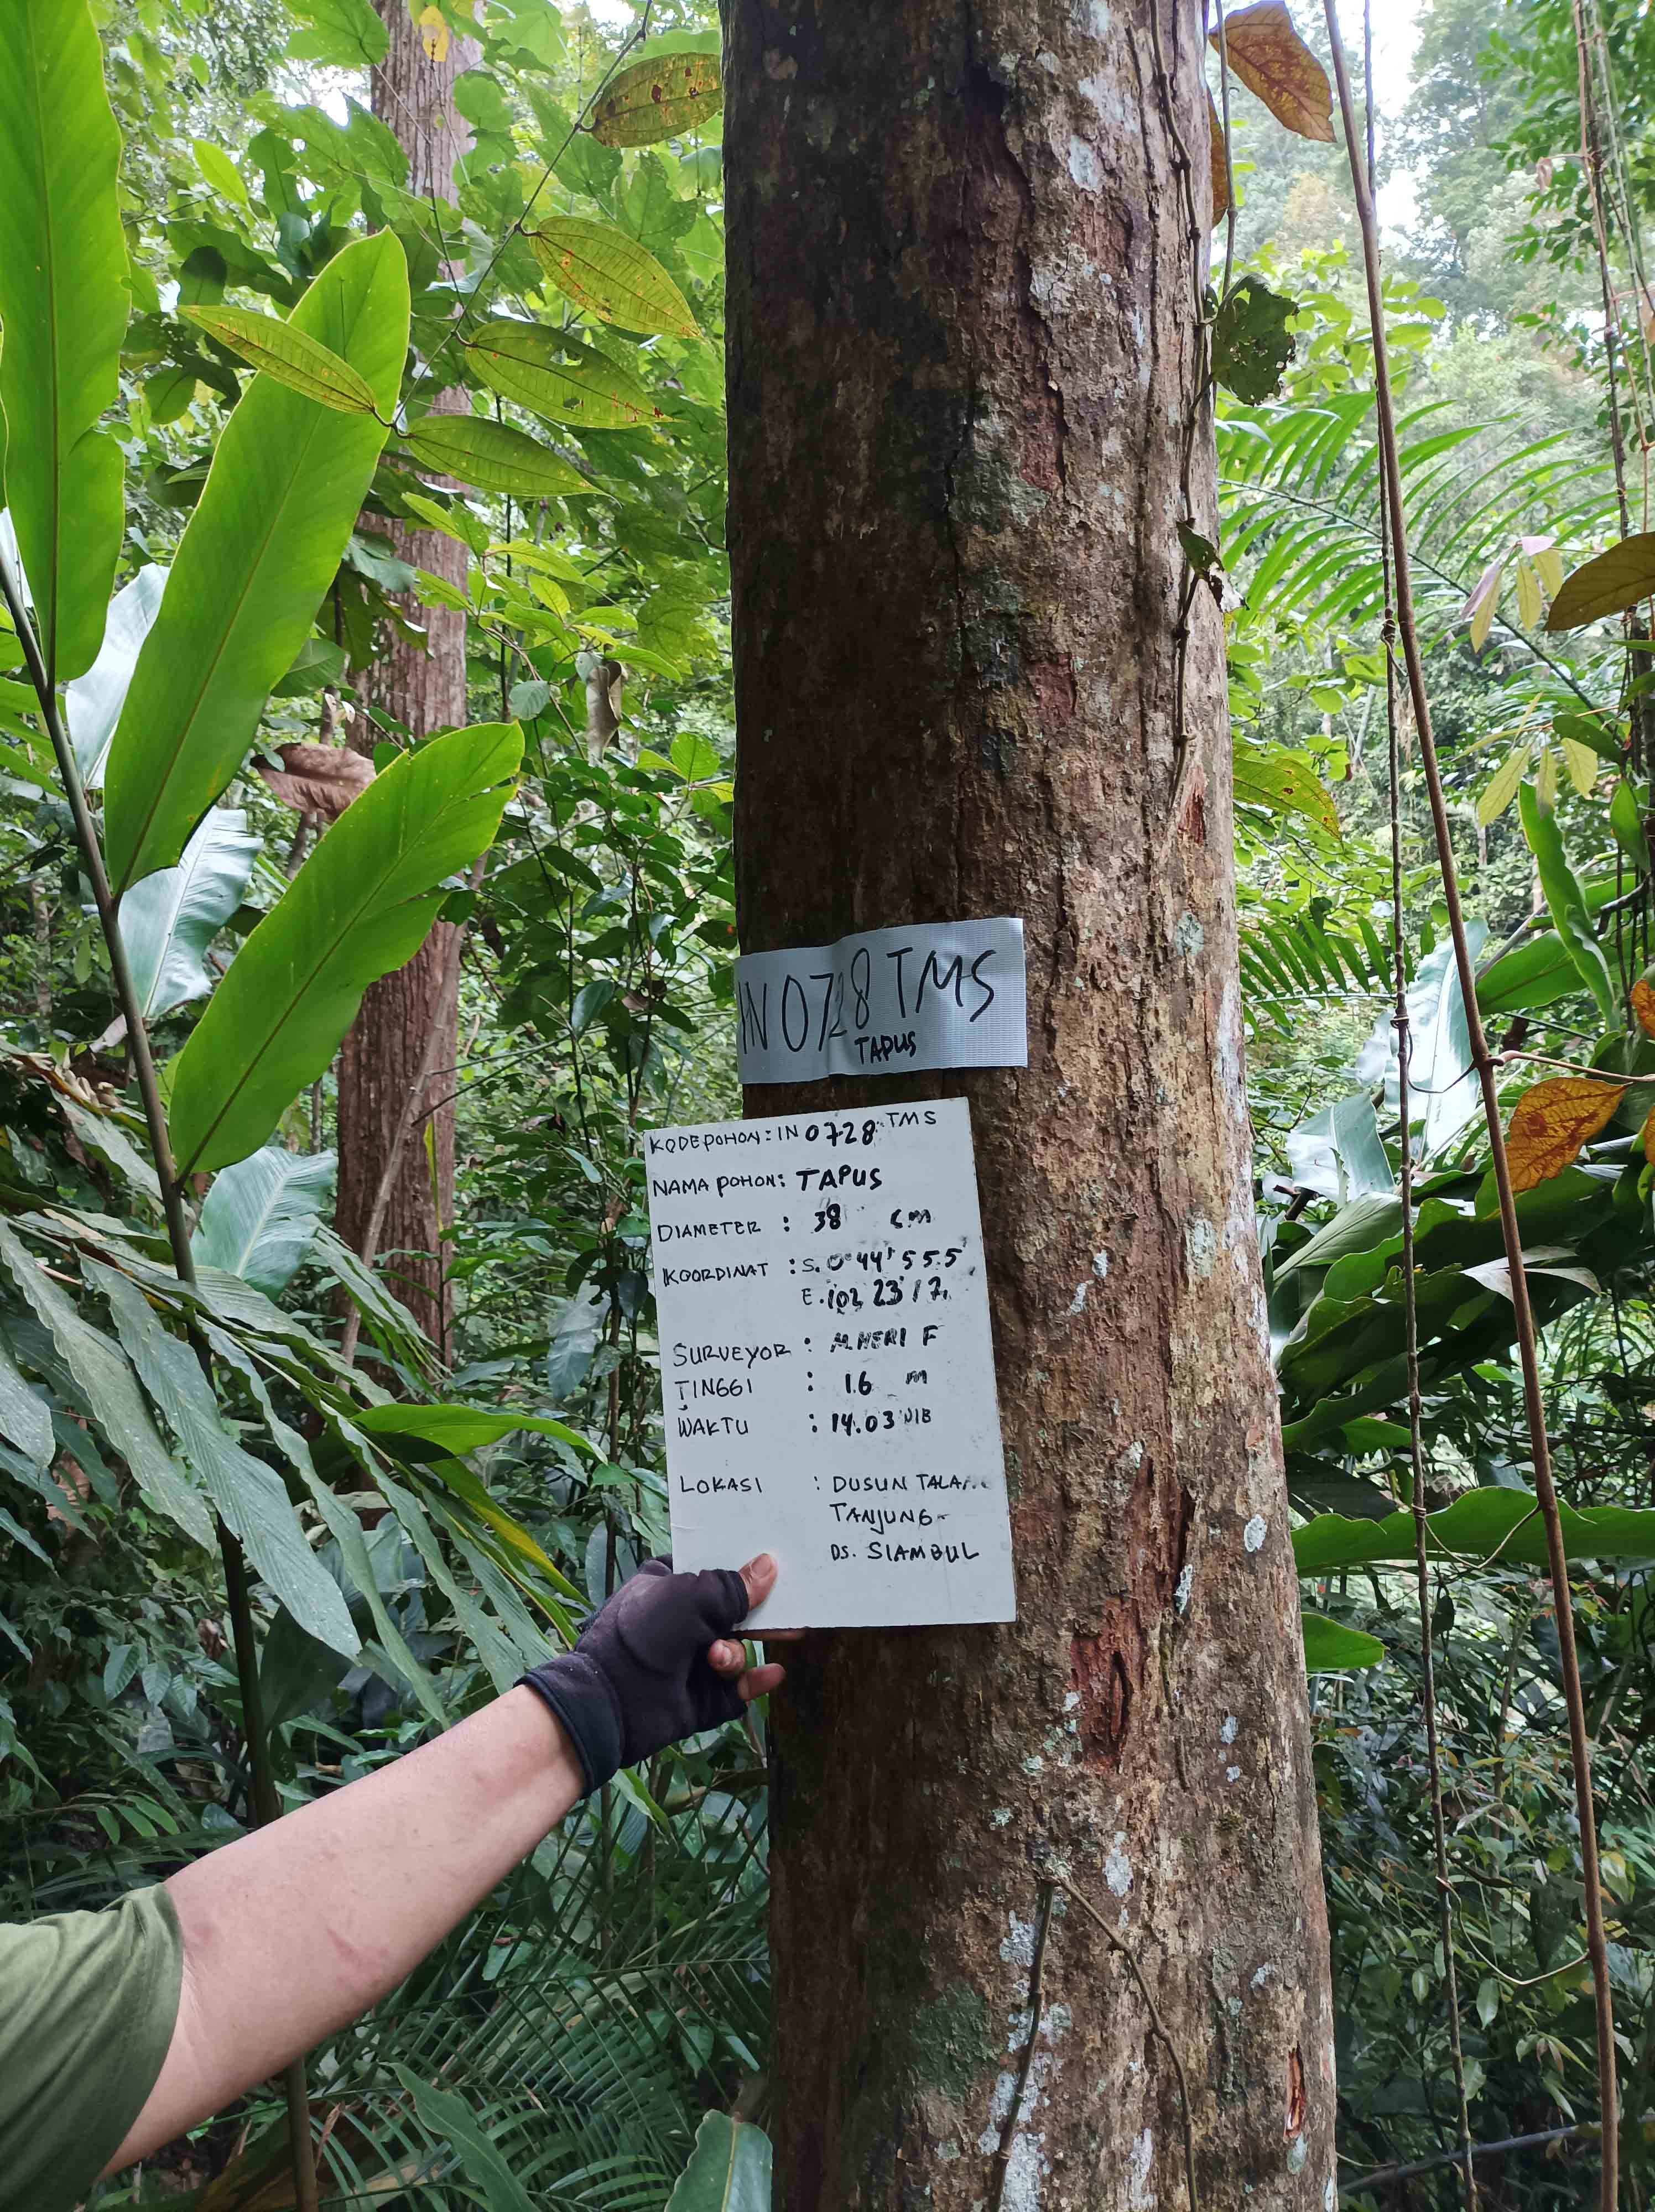 IN 0728 TMS
TAPUS
KODE POHON: IN 0728 TMS
NAMA POHON: TAPUS
DIAMETER : 38 CM
KOORDINAT : S. 0° 44' 55.5
E. 102 23' 17,
SURVEYOR : M.HERI F
TINGGI : 16 M
WAKTU : 14.03 WIB
LOKASI : DUSUN TALANG
TANJUNG
DS. SIAMBUL